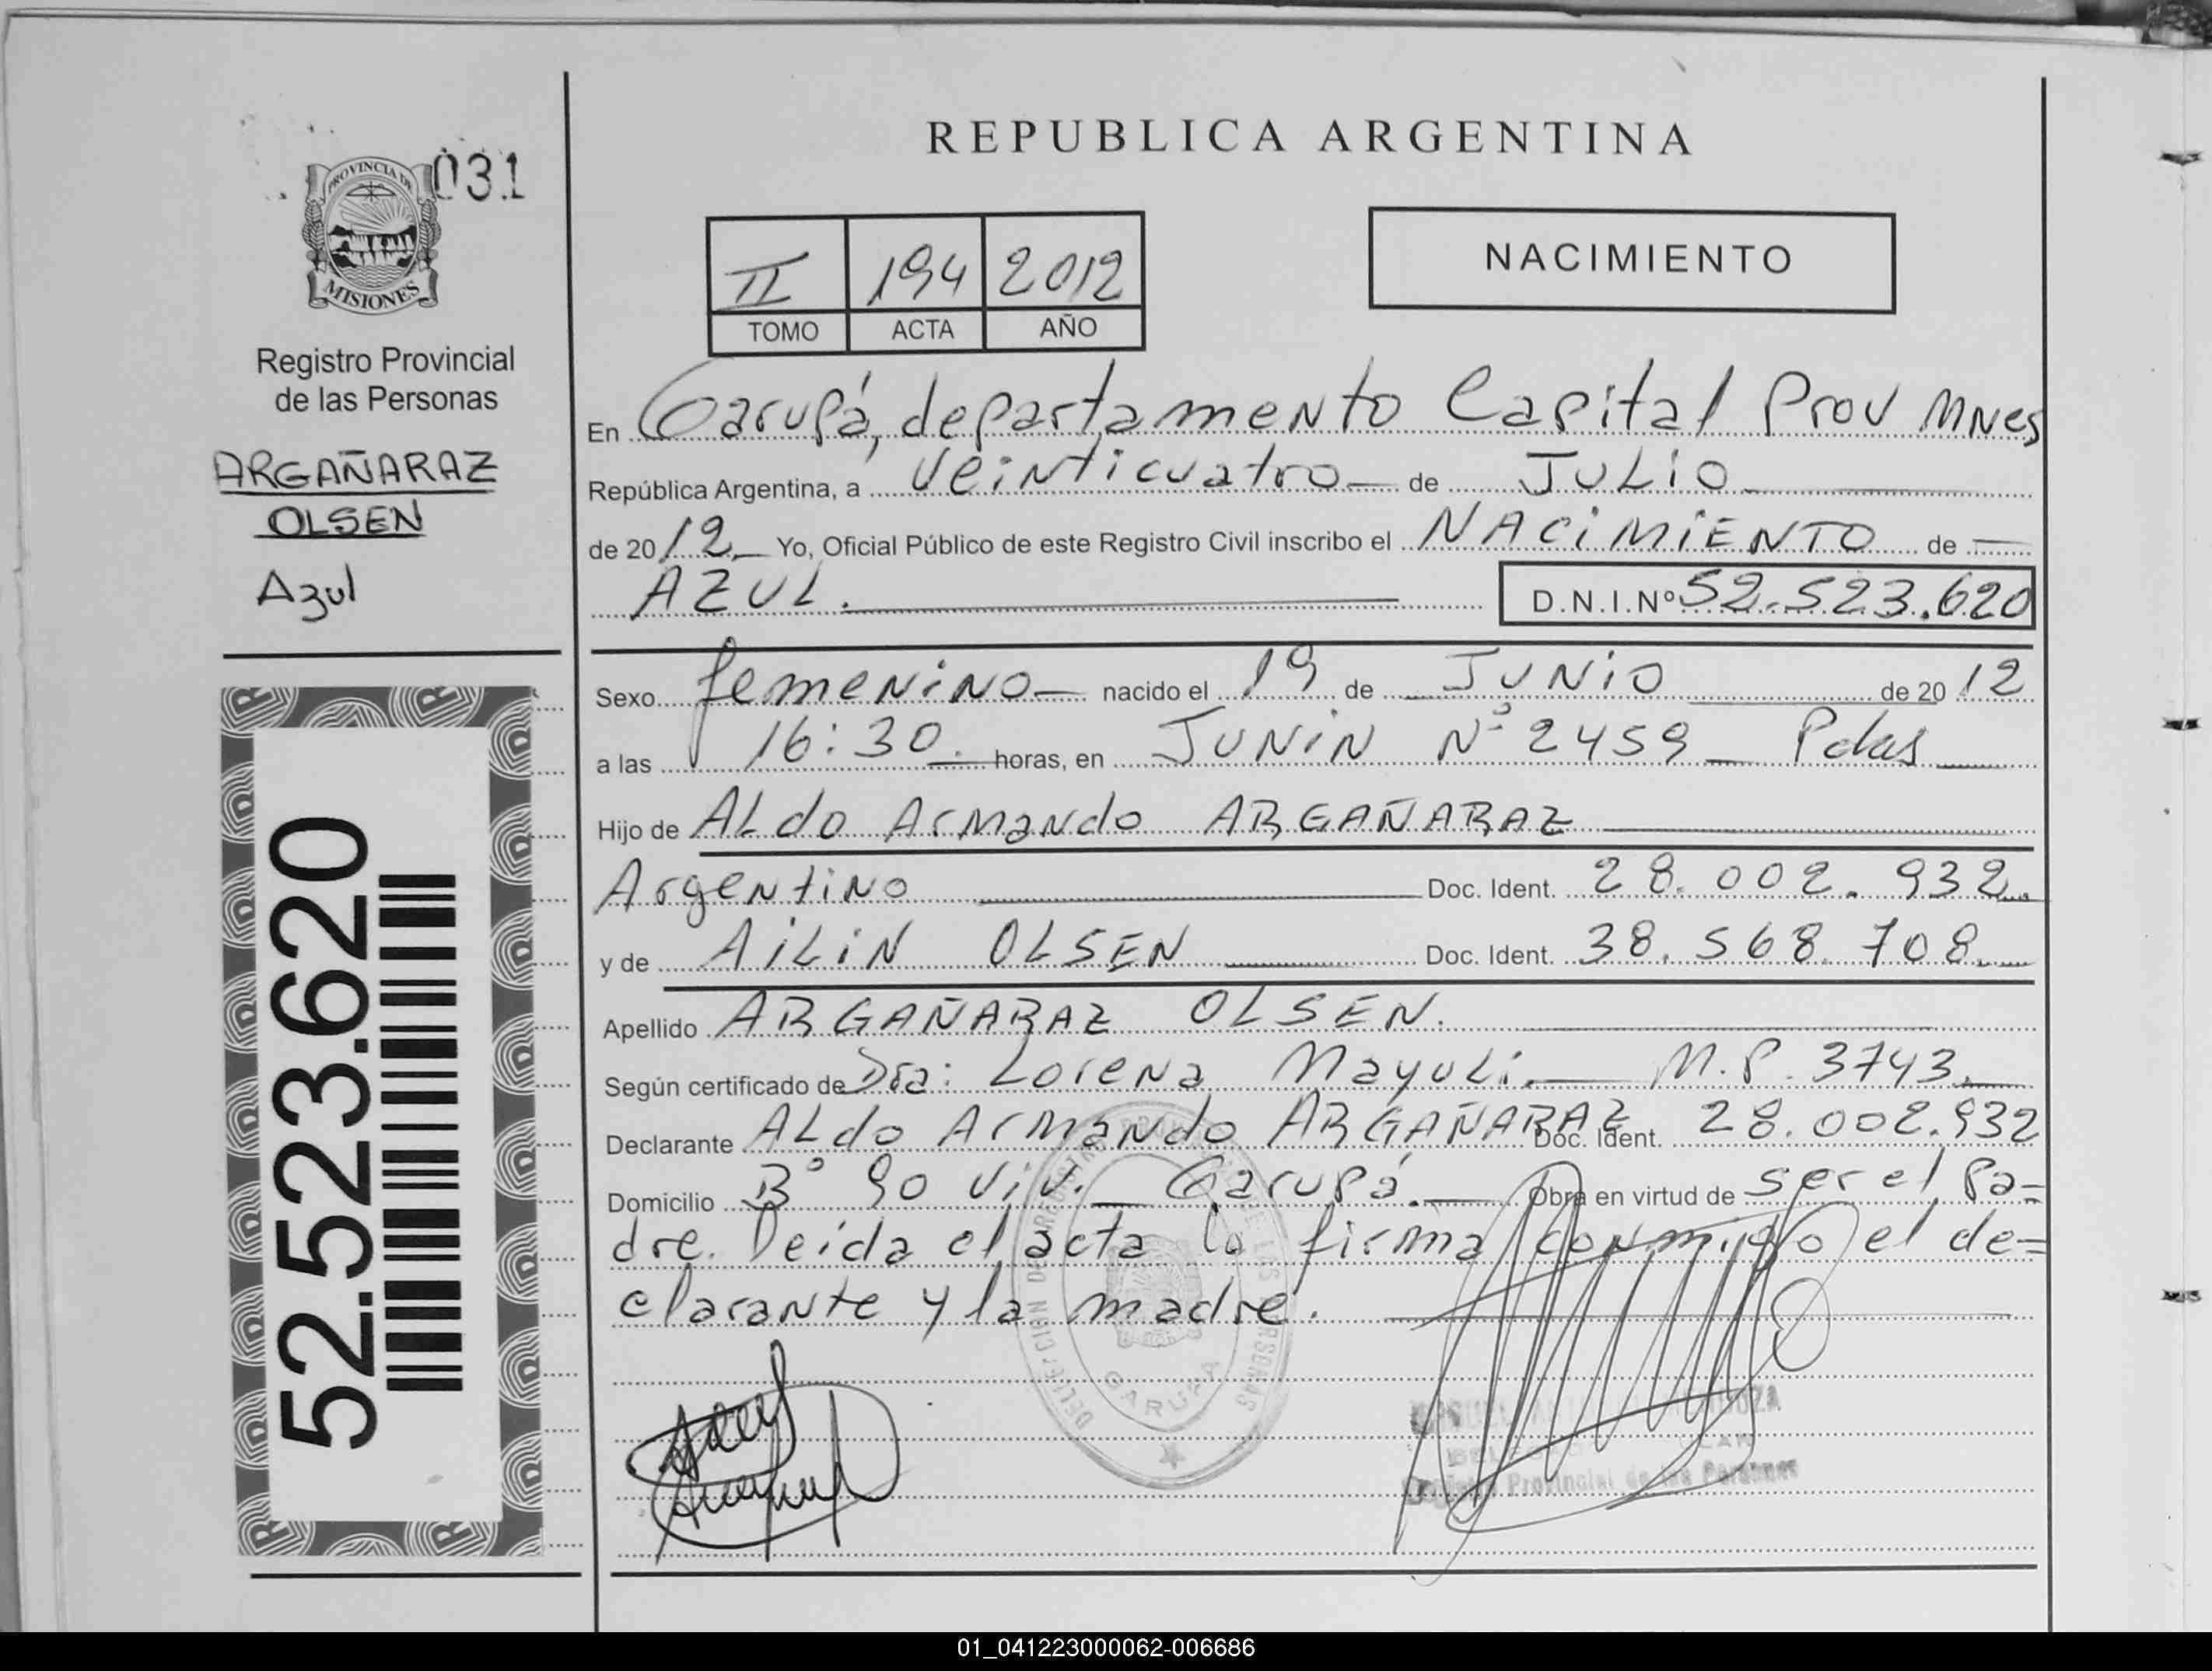 REPUBLICA ARGENTINA
031
PROVINCIA DE
MISIONES
Registro Provincial
de las Personas
ARGAÑARAZ
OLSEN
Azul
52.523.620
II 194 2012
TOMO ACTA AÑO
NACIMIENTO
En Garupá, departamento Capital Prov Mnes
República Argentina, a veinticuatro de JULIO
de 2012 Yo, Oficial Público de este Registro Civil inscribo el NACIMIENTO de
AZUL. D.N.I.Nº 52.523.620
Sexo femenino nacido el 19 de JUNIO de 2012
a las 16:30. horas, en JUNIN Nº 2459 Pdas
Hijo de ALdo Armando ARGAÑARAZ
Argentino Doc. Ident. 28.002.932
y de AILIN OLSEN Doc. Ident. 38.568.708
Apellido ARGAÑARAZ OLSEN.
Según certificado de Dra: Lorena Mayuli M.P. 3743.
Declarante ALdo Armando ARGAÑARAZ Doc. Ident. 28.002.932
Domicilio Bº 90 Viv. Garupá. Obra en virtud de ser el Pa=
dre. Leida el acta la firma conmigo el de=
clarante y la madre.
GARUPA
Provincial de las Personas
01_041223000062-006686